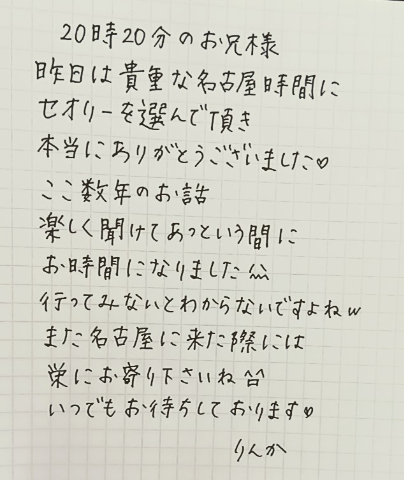 20時20分のお兄様
昨日は貴重な名古屋時間に
セオリーを選んで頂き
本当にありがとうございました♡
ここ数年のお話
楽しく聞けてあっという間に
お時間になりました^^
行ってみないとわからないですよねw
また名古屋に来た際には
栄にお寄り下さいね^^
いつでもお待ちしております♡
りんか